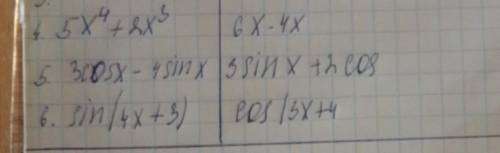 4. 5x⁴+2x³ 6x-4x
5. 3cosx-4sinx 3sinx+2cos
6. sin(4x+3) cos(3x+4